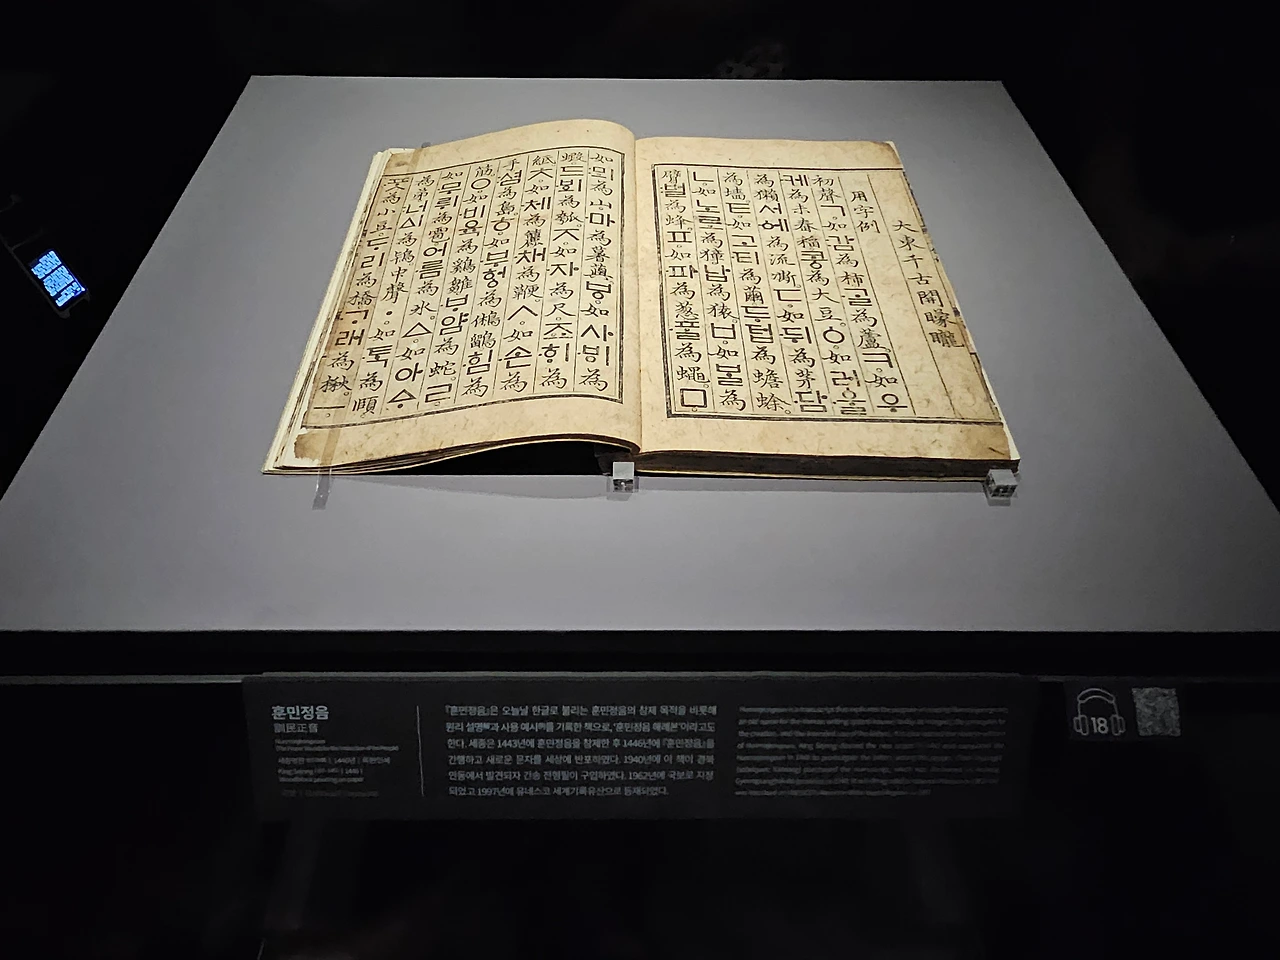 大東千古開曚曨
用字例
初聲ㄱ。如감為柿。ᄀᆞᆯ為蘆。ㅋ。如우
케為未舂稻。코ᇰ為大豆。ㆁ。如러ᅌᅮᆯ
為獺。서ᅌᅦ為流凘。ㄷ。如뒤為茅。담
為墻。ㅌ。如고티為繭。두텁為蟾蜍。
ㄴ。如노로為獐。납為猿。ㅂ。如ᄇᆞᆯ為
臂。벌為蜂。ㅍ。如파為葱。ᄑᆞᆯ為蠅。ㅁ。
如뫼為山。마為薯藇。ㅸ。如사ᄫᅵ為
蝦。드ᄫᅴ為瓠。ㅈ。如자為尺。죠ᄒᆡ為
紙。ㅊ。如체為籭。채為鞭。ㅅ。如손為
手。셤為島。ㅎ。如부허ᇰ為鵂鶹。힘為
筋。ㅇ。如비육為鷄雛。ᄇᆞ얌為蛇。ㄹ。
如무뤼為雹。어름為氷。ㅿ。如아ᅀᆞ
為弟。너ᅀᅵ為鴇。中聲ㆍ。如ᄐᆞᆨ為頤。
ᄑᆞᆺ為小豆。ᄃᆞ리為橋。ᄀᆞ래為楸。ㅡ。
훈민정음
訓民正音
『훈민정음』은 오늘날 한글로 불리는 훈민정음의 창제 목적을 비롯해
원리 설명解과 사용 예시例를 기록한 책으로, '훈민정음 해례본'이라고도
한다. 세종은 1443년에 훈민정음을 창제한 후 1446년에 『훈민정음』을
간행하고 새로운 문자를 세상에 반포하였다. 1940년에 이 책이 경북
안동에서 발견되자 간송 전형필이 구입하였다. 1962년에 국보로 지정
되었고 1997년에 유네스코 세계기록유산으로 등재되었다.
18